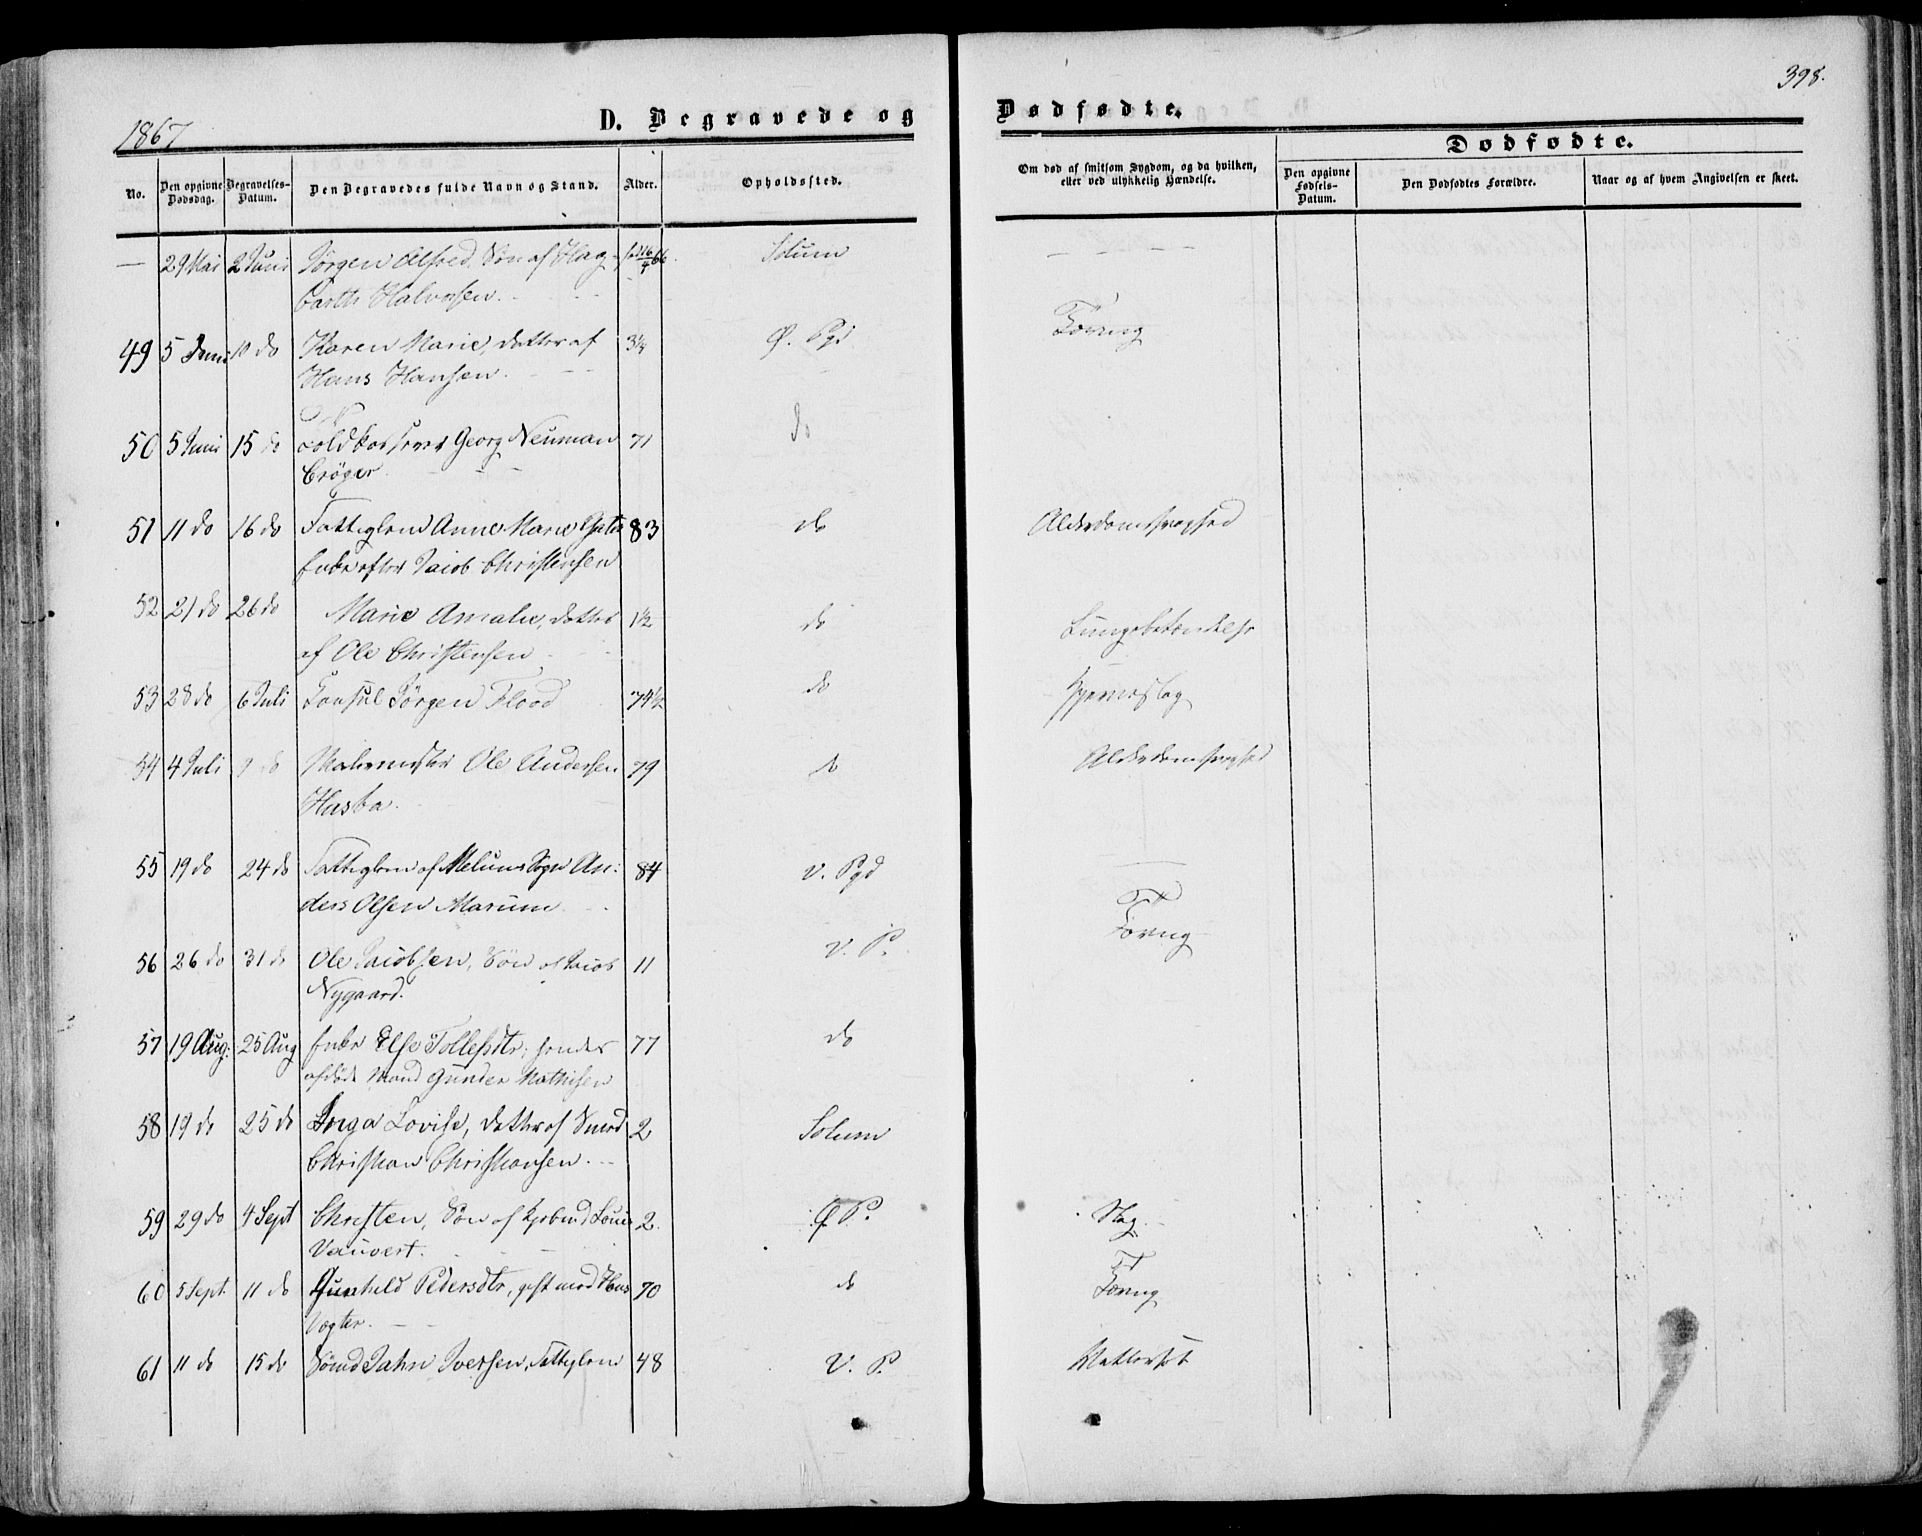 398.
1867
D. Begravede og Dødfødte.
Dødfødte.
No.
Den opgivne Dødsdag.
Begravelses-Datum.
Den Begravedes fulde Navn og Stand.
Alder.
Opholdssted.
Om død af smitsom Sygdom, og da hvilken, eller ved ulykkelig Hændelse.
Den opgivne Fødsels-Datum.
Den Dødfødtes Forældre.
Naar og af hvem Angivelsen er skeet.
— 29 Mai 2 Juni Jørgen Alfred, Søn af Hag- Solum
barth Halvorsen.
49 5 Juni 10 do Karen Marie, datter af 3¼ Ø. Pgd Tæring
Hans Hansen.
50 5 Juni 15 do Toldkasserer Georg Neuman 71 do
Crøger
51 11 do 16 do Fattiglem Anne Marie 83 do Alderdomssvaghed
Enke efter Jacob Christensen
52 21 do 26 do Marie Amalie, datter 1½ do Lungebetændelse
af Ole Christensen
53 28 do 6 Juli Konsul Jørgen Flood 74½ do Hjerneslag
54 4 Juli 9 do Malermester Ole Andersen 79 do Alderdomssvaghed
Hasba.
55 19 do 24 do Fattiglem af Melums Sogn An: 84 V. Pgd
ders Olsen Marum
56 26 do 31 do Ole Jacobsen, Søn af Jacob 11 V. P. Tæring
Nygaard.
57 19 Aug: 25 Aug Enke Else Tollefsdtr, hendes 77 do
afdøde Mand Gunder Mathisen
58 19 do 25 do Inga Lovise, datter af Smed 2 Solum
Christian Christiansen.
59 29 do 4 Sept Christen, Søn af Kjøbmd Louis 2. Ø P. Slag
Vauvert.
60 5 Sept. 11 do Gunhild Pedersdtr, gift med 70 do Tæring
Vægter.
61 11 do 15 do Sømd Jahn Iversen, Fattiglem 48 V. P. Vattersot